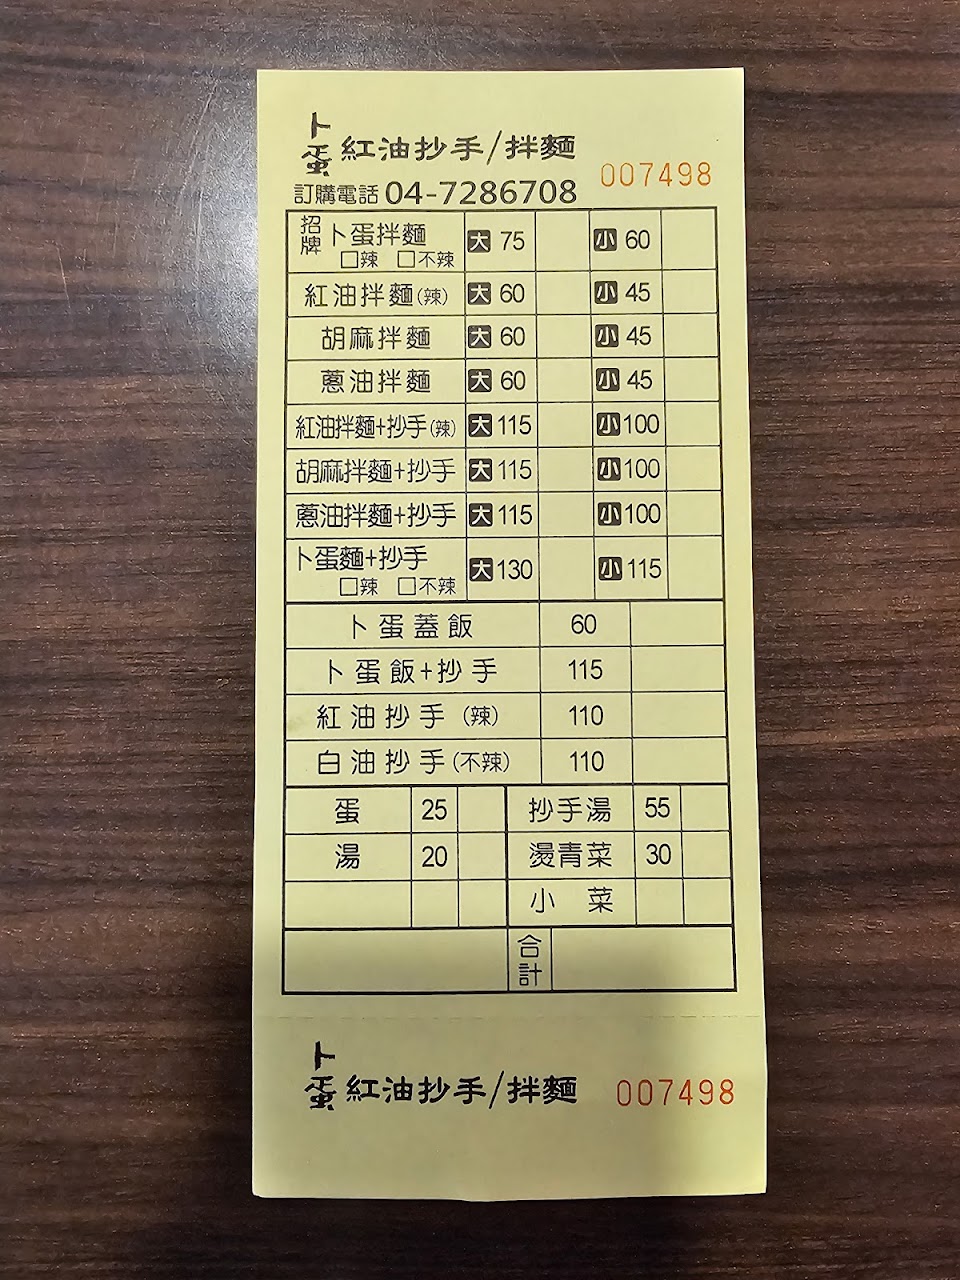 卜蛋 紅油抄手/拌麵 007498
訂購電話 04-7286708
招牌 卜蛋拌麵 □辣 □不辣 大 75 小 60
紅油拌麵(辣) 大 60 小 45
胡麻拌麵 大 60 小 45
蔥油拌麵 大 60 小 45
紅油拌麵+抄手(辣) 大 115 小 100
胡麻拌麵+抄手 大 115 小 100
蔥油拌麵+抄手 大 115 小 100
卜蛋麵+抄手 □辣 □不辣 大 130 小 115
卜蛋蓋飯 60
卜蛋飯+抄手 115
紅油抄手(辣) 110
白油抄手(不辣) 110
蛋 25 抄手湯 55
湯 20 燙青菜 30
小菜
合計
卜蛋 紅油抄手/拌麵 007498